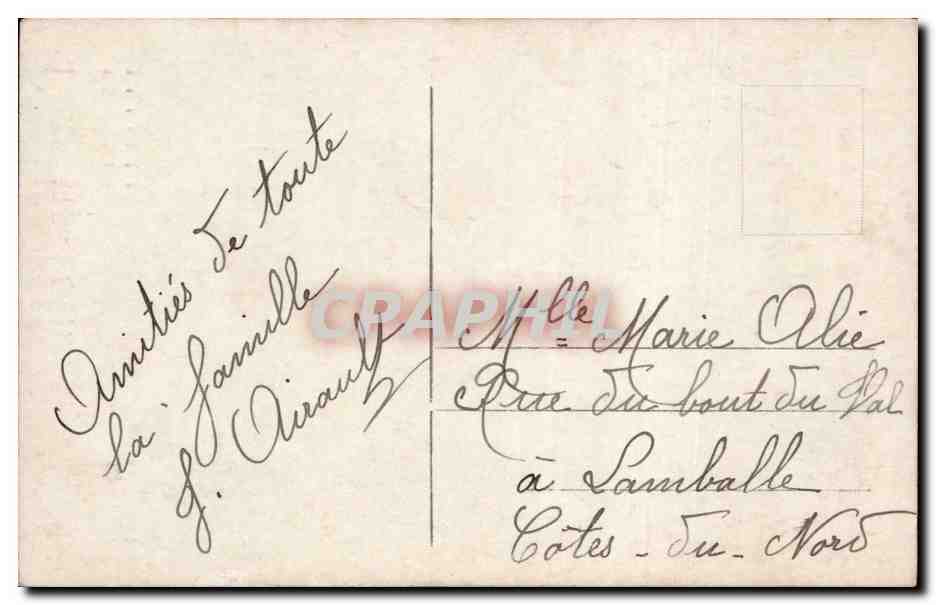 Amitiés de toute
la famille
J. Airault
Mlle Marie Alie
Rue du bout du Val
à Lamballe
Côtes-du-Nord
CRAPHIL